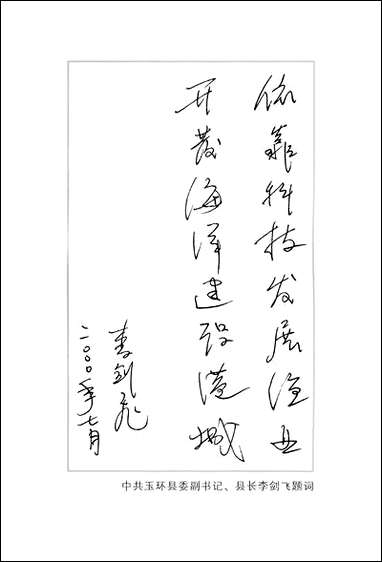 依靠科技发展渔业
开发海洋建设港城
李剑飞
二〇〇〇年七月
中共玉环县委副书记、县长李剑飞题词